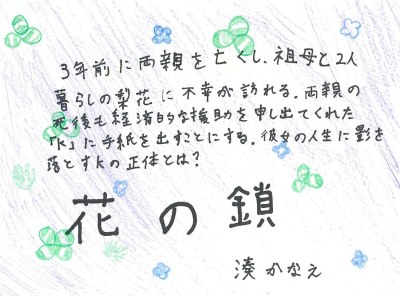 3年前に両親を亡くし、祖母と2人
暮らしの梨花に不幸が訪れる。両親の
死後も経済的な援助を申し出てくれた
「K」に手紙を出すことにする。彼女の人生に影を
落とすKの正体とは?
花の鎖
湊かなえ